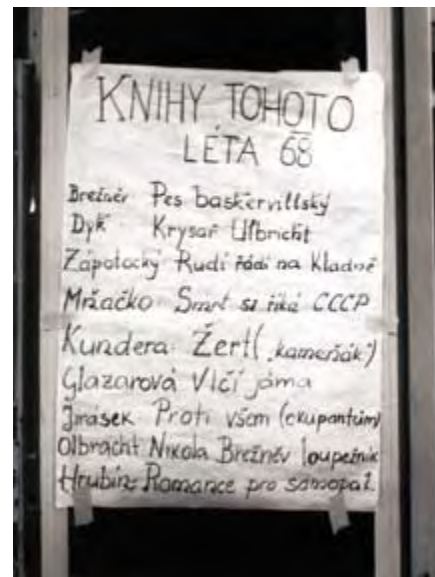 KNIHY TOHOTO
LÉTA 68
Brežněv Pes baskervillský
Dyk Krysař Ulbricht
Zápotocký Rudí řádí na Kladně
Mňačko Smrt si říká CCCP
Kundera Žert („kameňák")
Glazarová Vlčí jáma
Jirásek Proti všem (okupantům)
Olbracht Nikola Brežněv loupežník
Hrubín: Romance pro samopal.